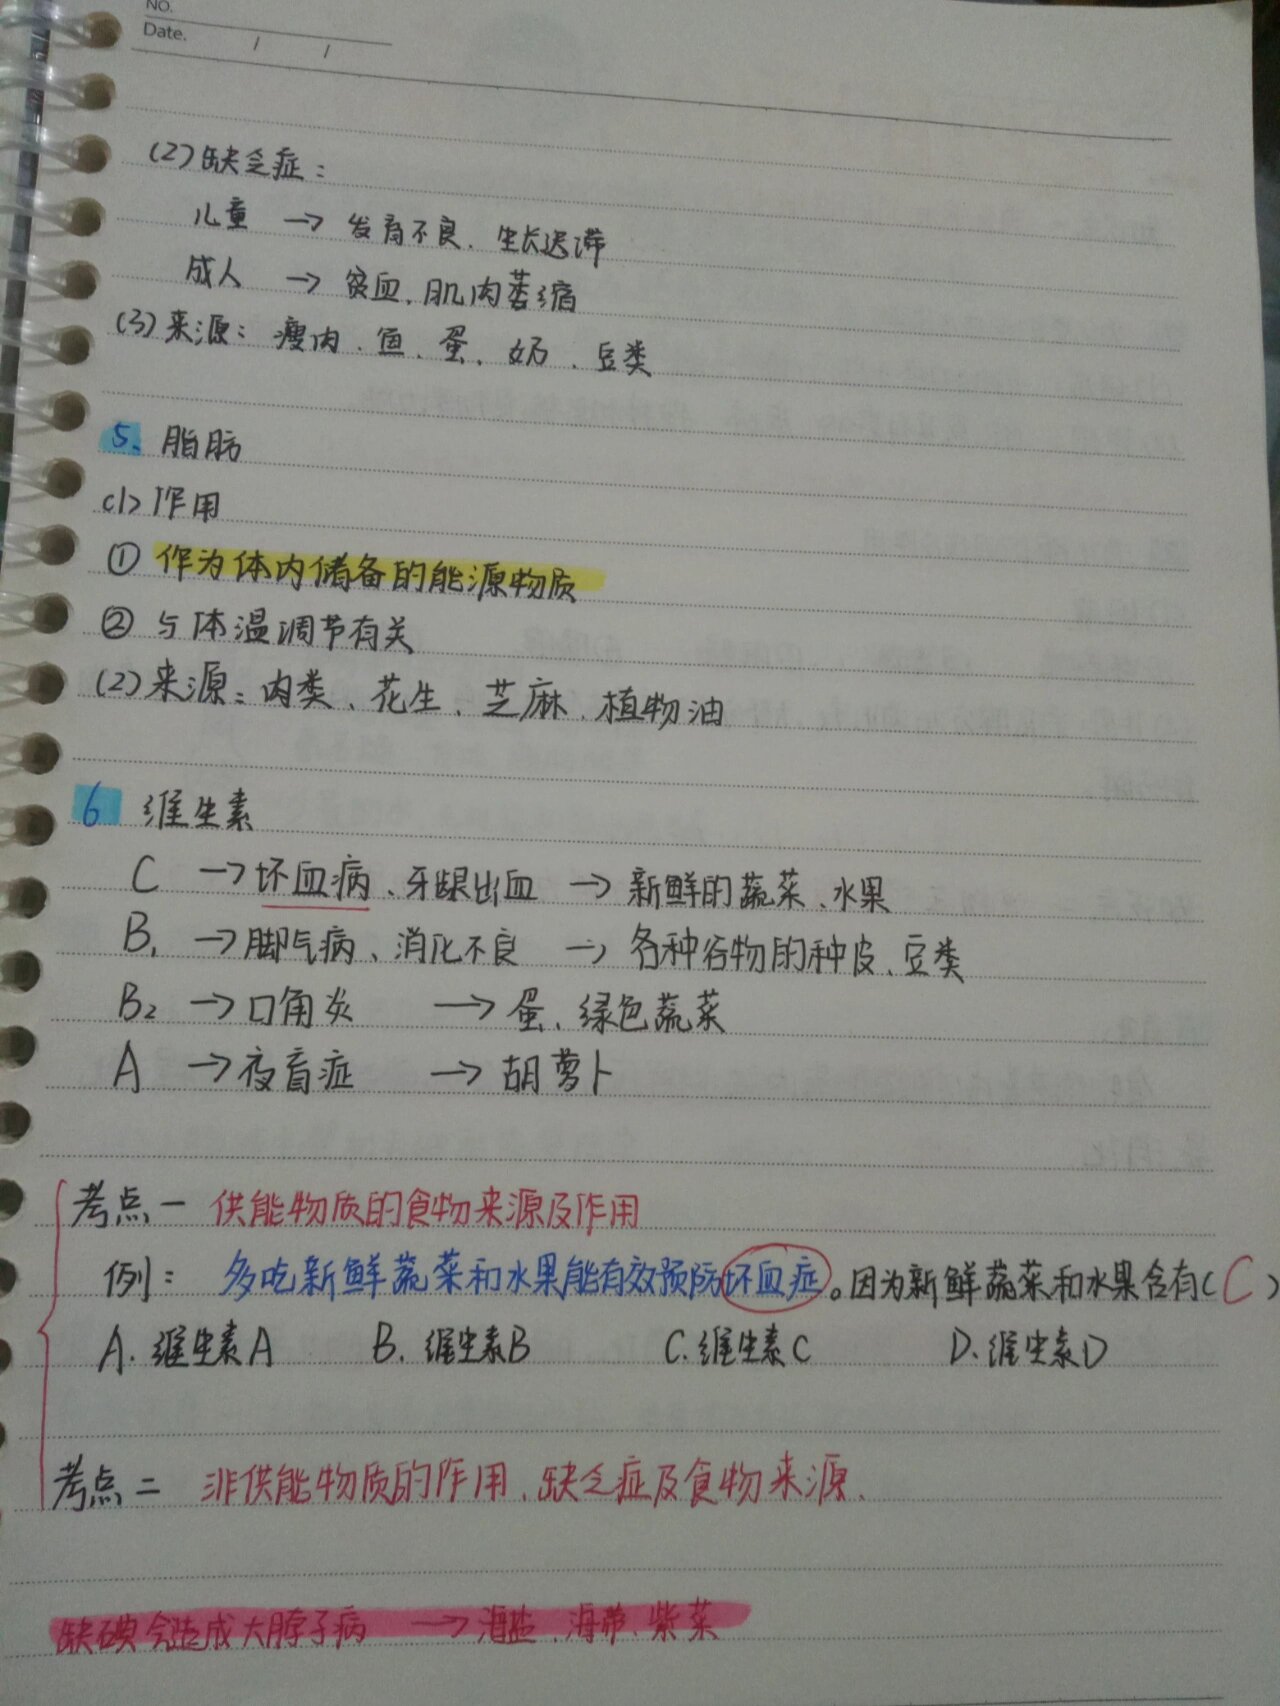 NO.
Date. / /
(2)缺乏症：
儿童 → 发育不良、生长迟滞
成人 → 贫血、肌肉萎缩
(3)来源：瘦肉、鱼、蛋、奶、豆类
5、脂肪
(1)作用
① 作为体内储备的能源物质
② 与体温调节有关
(2)来源：肉类、花生、芝麻、植物油
6 维生素
C → 坏血病、牙龈出血 → 新鲜的蔬菜、水果
B₁ → 脚气病、消化不良 → 各种谷物的种皮、豆类
B₂ → 口角炎 → 蛋、绿色蔬菜
A → 夜盲症 → 胡萝卜
考点一 供能物质的食物来源及作用
例：多吃新鲜蔬菜和水果能有效预防坏血症。因为新鲜蔬菜和水果含有(C)
A. 维生素A B. 维生素B C. 维生素C D. 维生素D
考点二 非供能物质的作用、缺乏症及食物来源.
缺碘会造成大脖子病 → 海盐、海带、紫菜